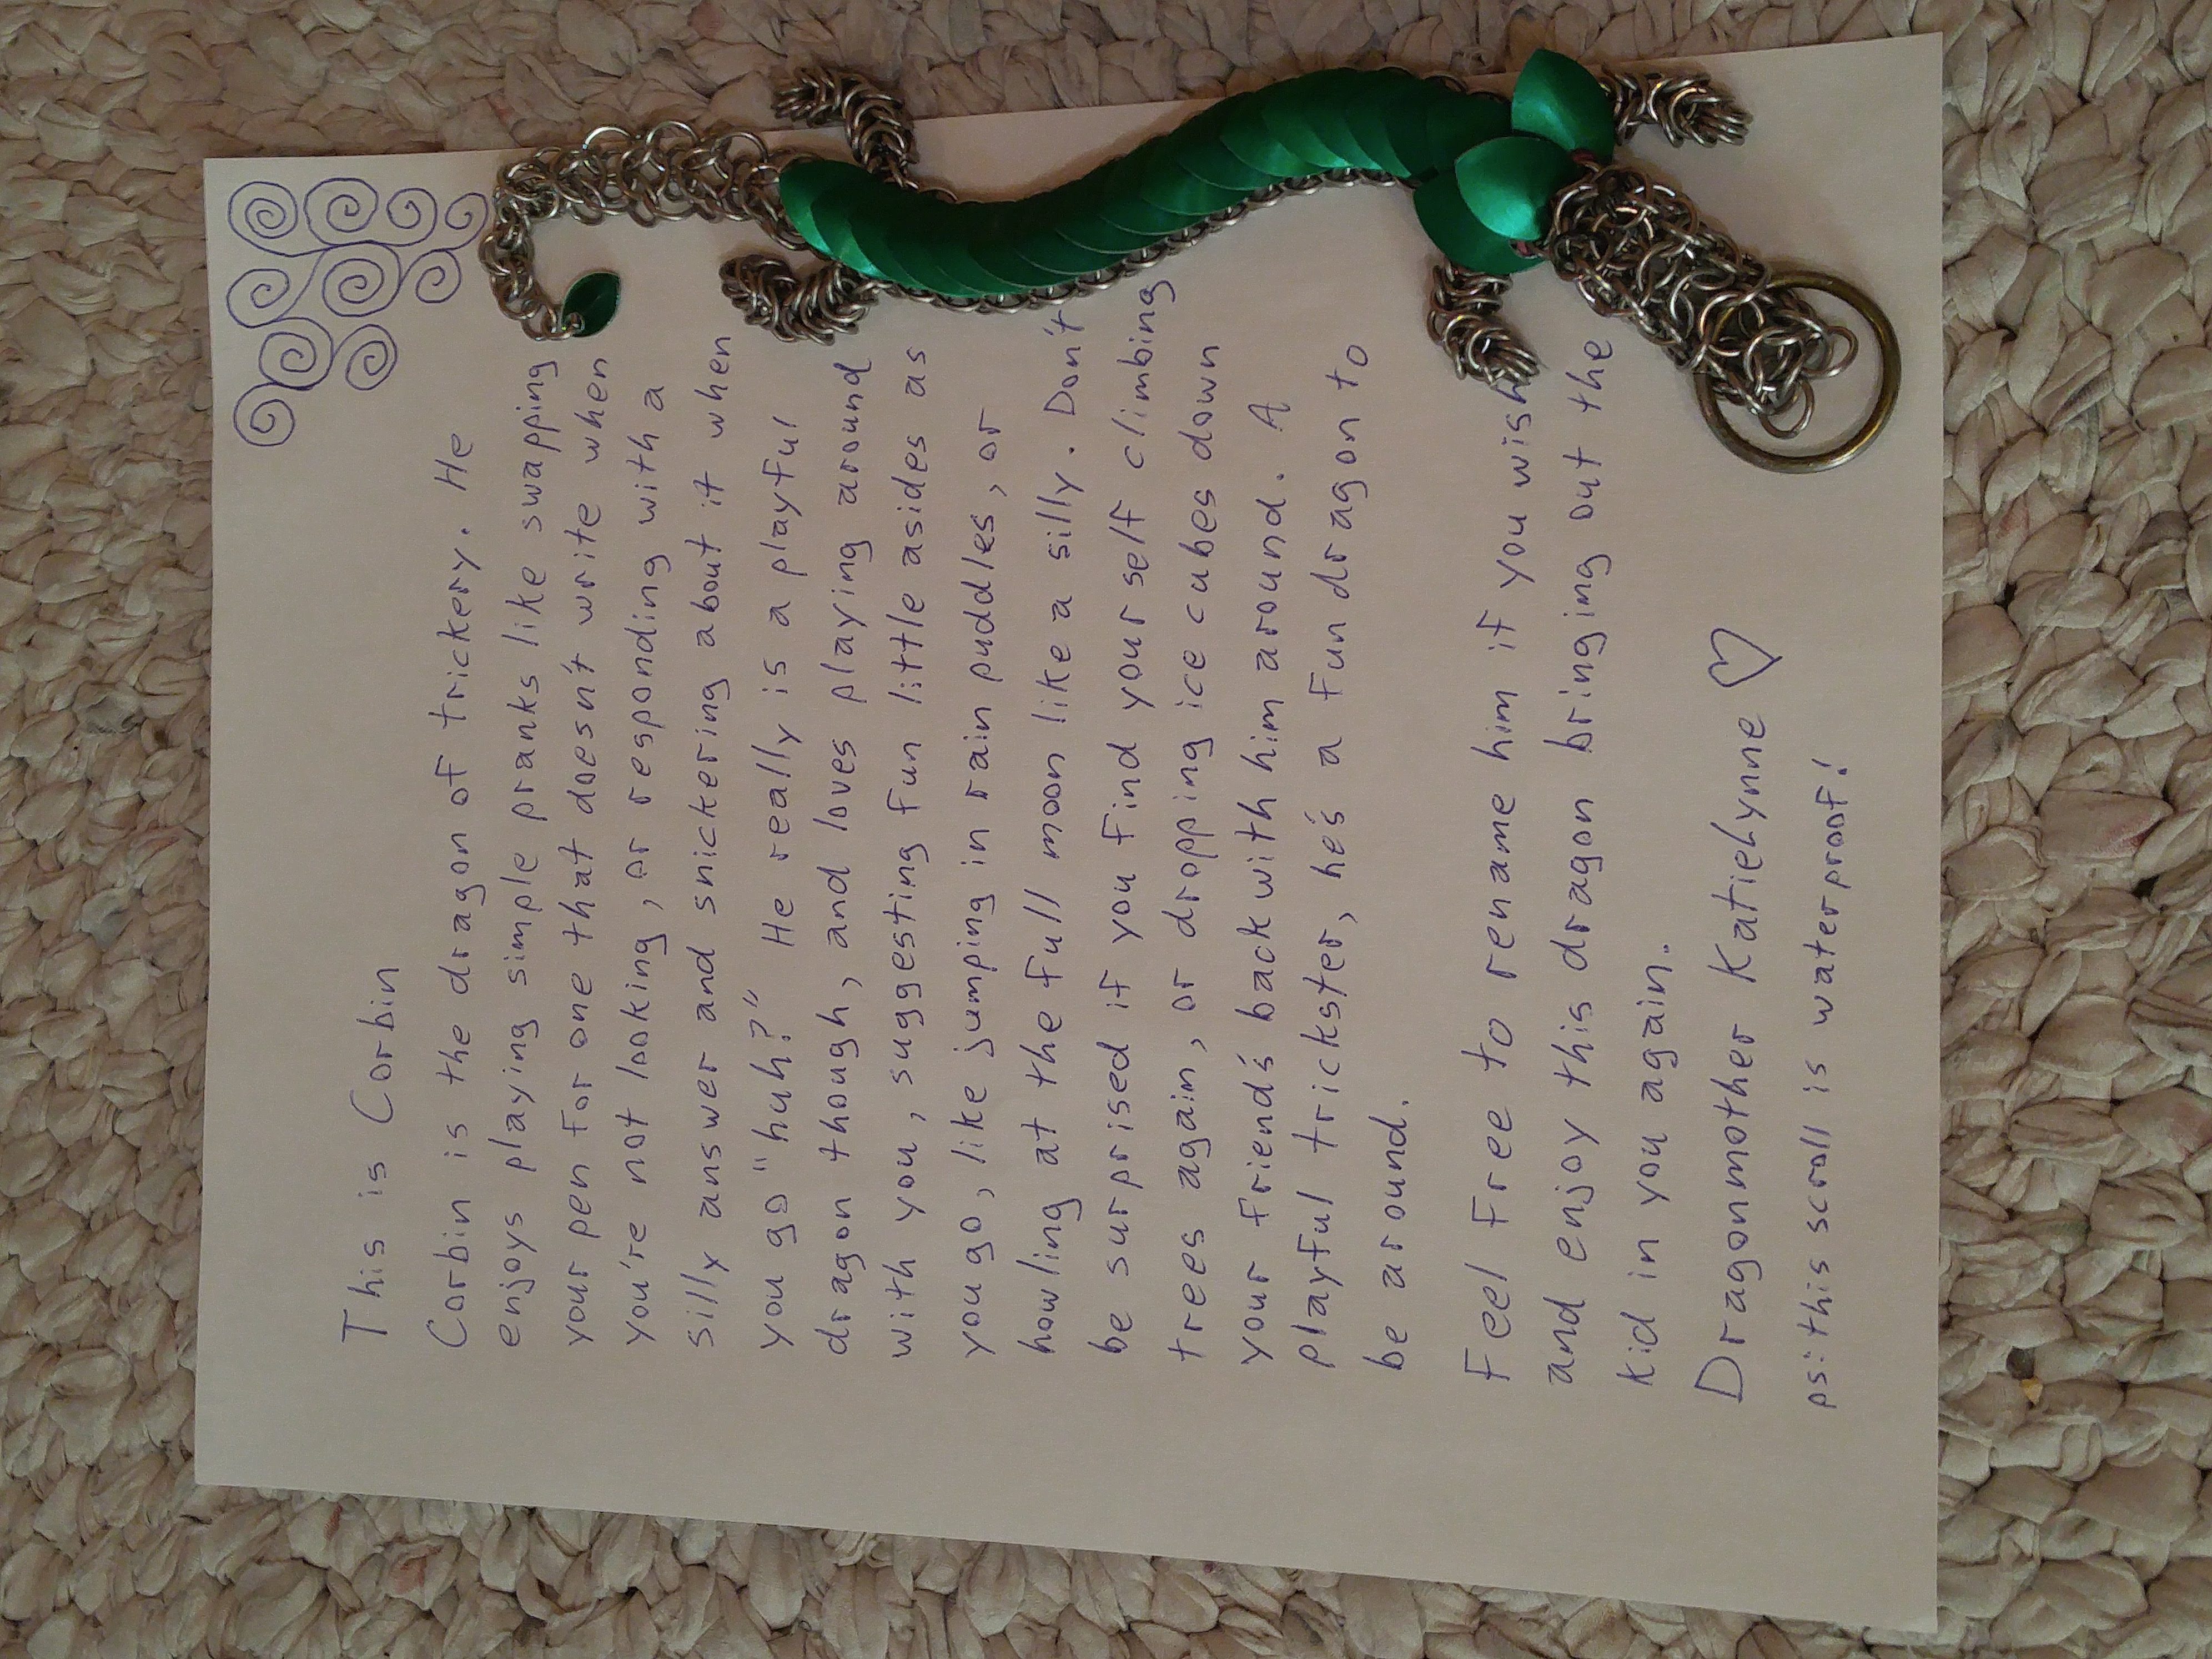 This is Corbin
Corbin is the dragon of trickery. He
enjoys playing simple pranks like swapping
your pen for one that doesn't write when
you're not looking, or responding with a
silly answer and snickering about it when
you go "huh?" He really is a playful
dragon though, and loves playing around
with you, suggesting fun little asides as
you go, like jumping in rain puddles, or
howling at the full moon like a silly. Don't
be surprised if you find yourself climbing
trees again, or dropping ice cubes down
your friend's back with him around. A
playful trickster, he's a fun dragon to
be around.
Feel free to rename him if you wish
and enjoy this dragon bringing out the
kid in you again.
Dragonmother Katielynne ♡
ps: this scroll is waterproof!